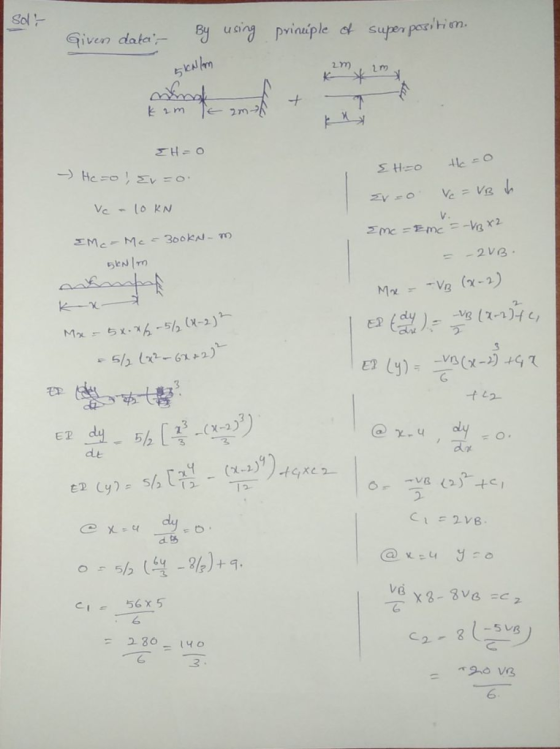 Sol:-
Given data:- By using principle of superposition.
5kN/m
2m
2m
+
2m
2m
x
ΣH=0
→ Hc=0 ; ΣV=0.
Vc - 10 KN
ΣMc - Mc = 300KN-m
5kN/m
x
Mx = 5x·x/2 - 5/2 (x-2)²
= 5/2 (x² - 6x+2)²
EI dy/dt = 5/2 [x³/3 - (x-2)³/3)
EI (y) = 5/2 [x⁴/12 - (x-2)⁴/12) + C1 x C2
@ x=4 dy/dx = 0.
0 = 5/2 (64/3 - 8/3) + 9.
C1 = 56×5/6
= 280/6 = 140/3.
ΣH=0 Hc=0
ΣV=0 Vc = VB ↓
Σmc = Σmc = -VB×2
= -2VB.
Mx = -VB (x-2)
EI (dy/dx) = -VB/2 (x-2)² + C1
EI (y) = -VB/6 (x-2)³ + C1 x
+C2
@ x=4, dy/dx = 0.
0 = -VB/2 (2)² + C1
C1 = 2VB.
@ x=4 y=0
VB/6 ×8 - 8VB = C2
C2 - 8 (-5VB/6)
= -20 VB/6.